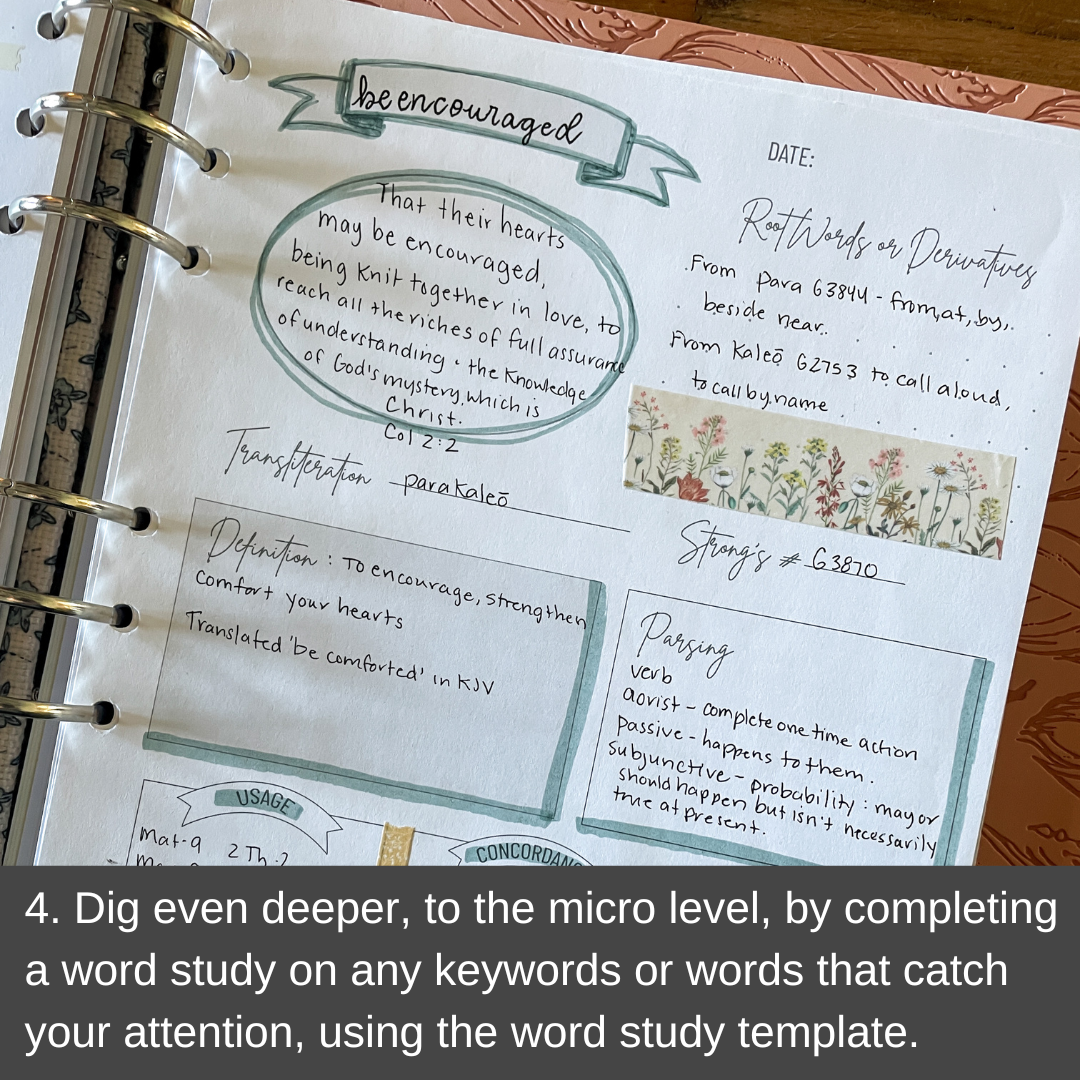 be encouraged
DATE:
That their hearts
may be encouraged,
being knit together in love, to
reach all the riches of full assurance
of understanding & the knowledge
of God's mystery, which is
Christ.
Col 2:2
Root Words or Derivatives
From para G3844 - from, at, by,
beside near.
From Kaleō G2753 to call aloud,
to call by name
Transliteration parakaleō
Strong's # G3870
Definition : To encourage, strengthen
comfort your hearts
Translated 'be comforted' in KJV
Parsing
verb
aorist - complete one time action
passive - happens to them.
subjunctive - probability : may or
should happen but isn't necessarily
true at present.
USAGE
Mat-9 2 Th-2
CONCORDANC
4. Dig even deeper, to the micro level, by completing
a word study on any keywords or words that catch
your attention, using the word study template.